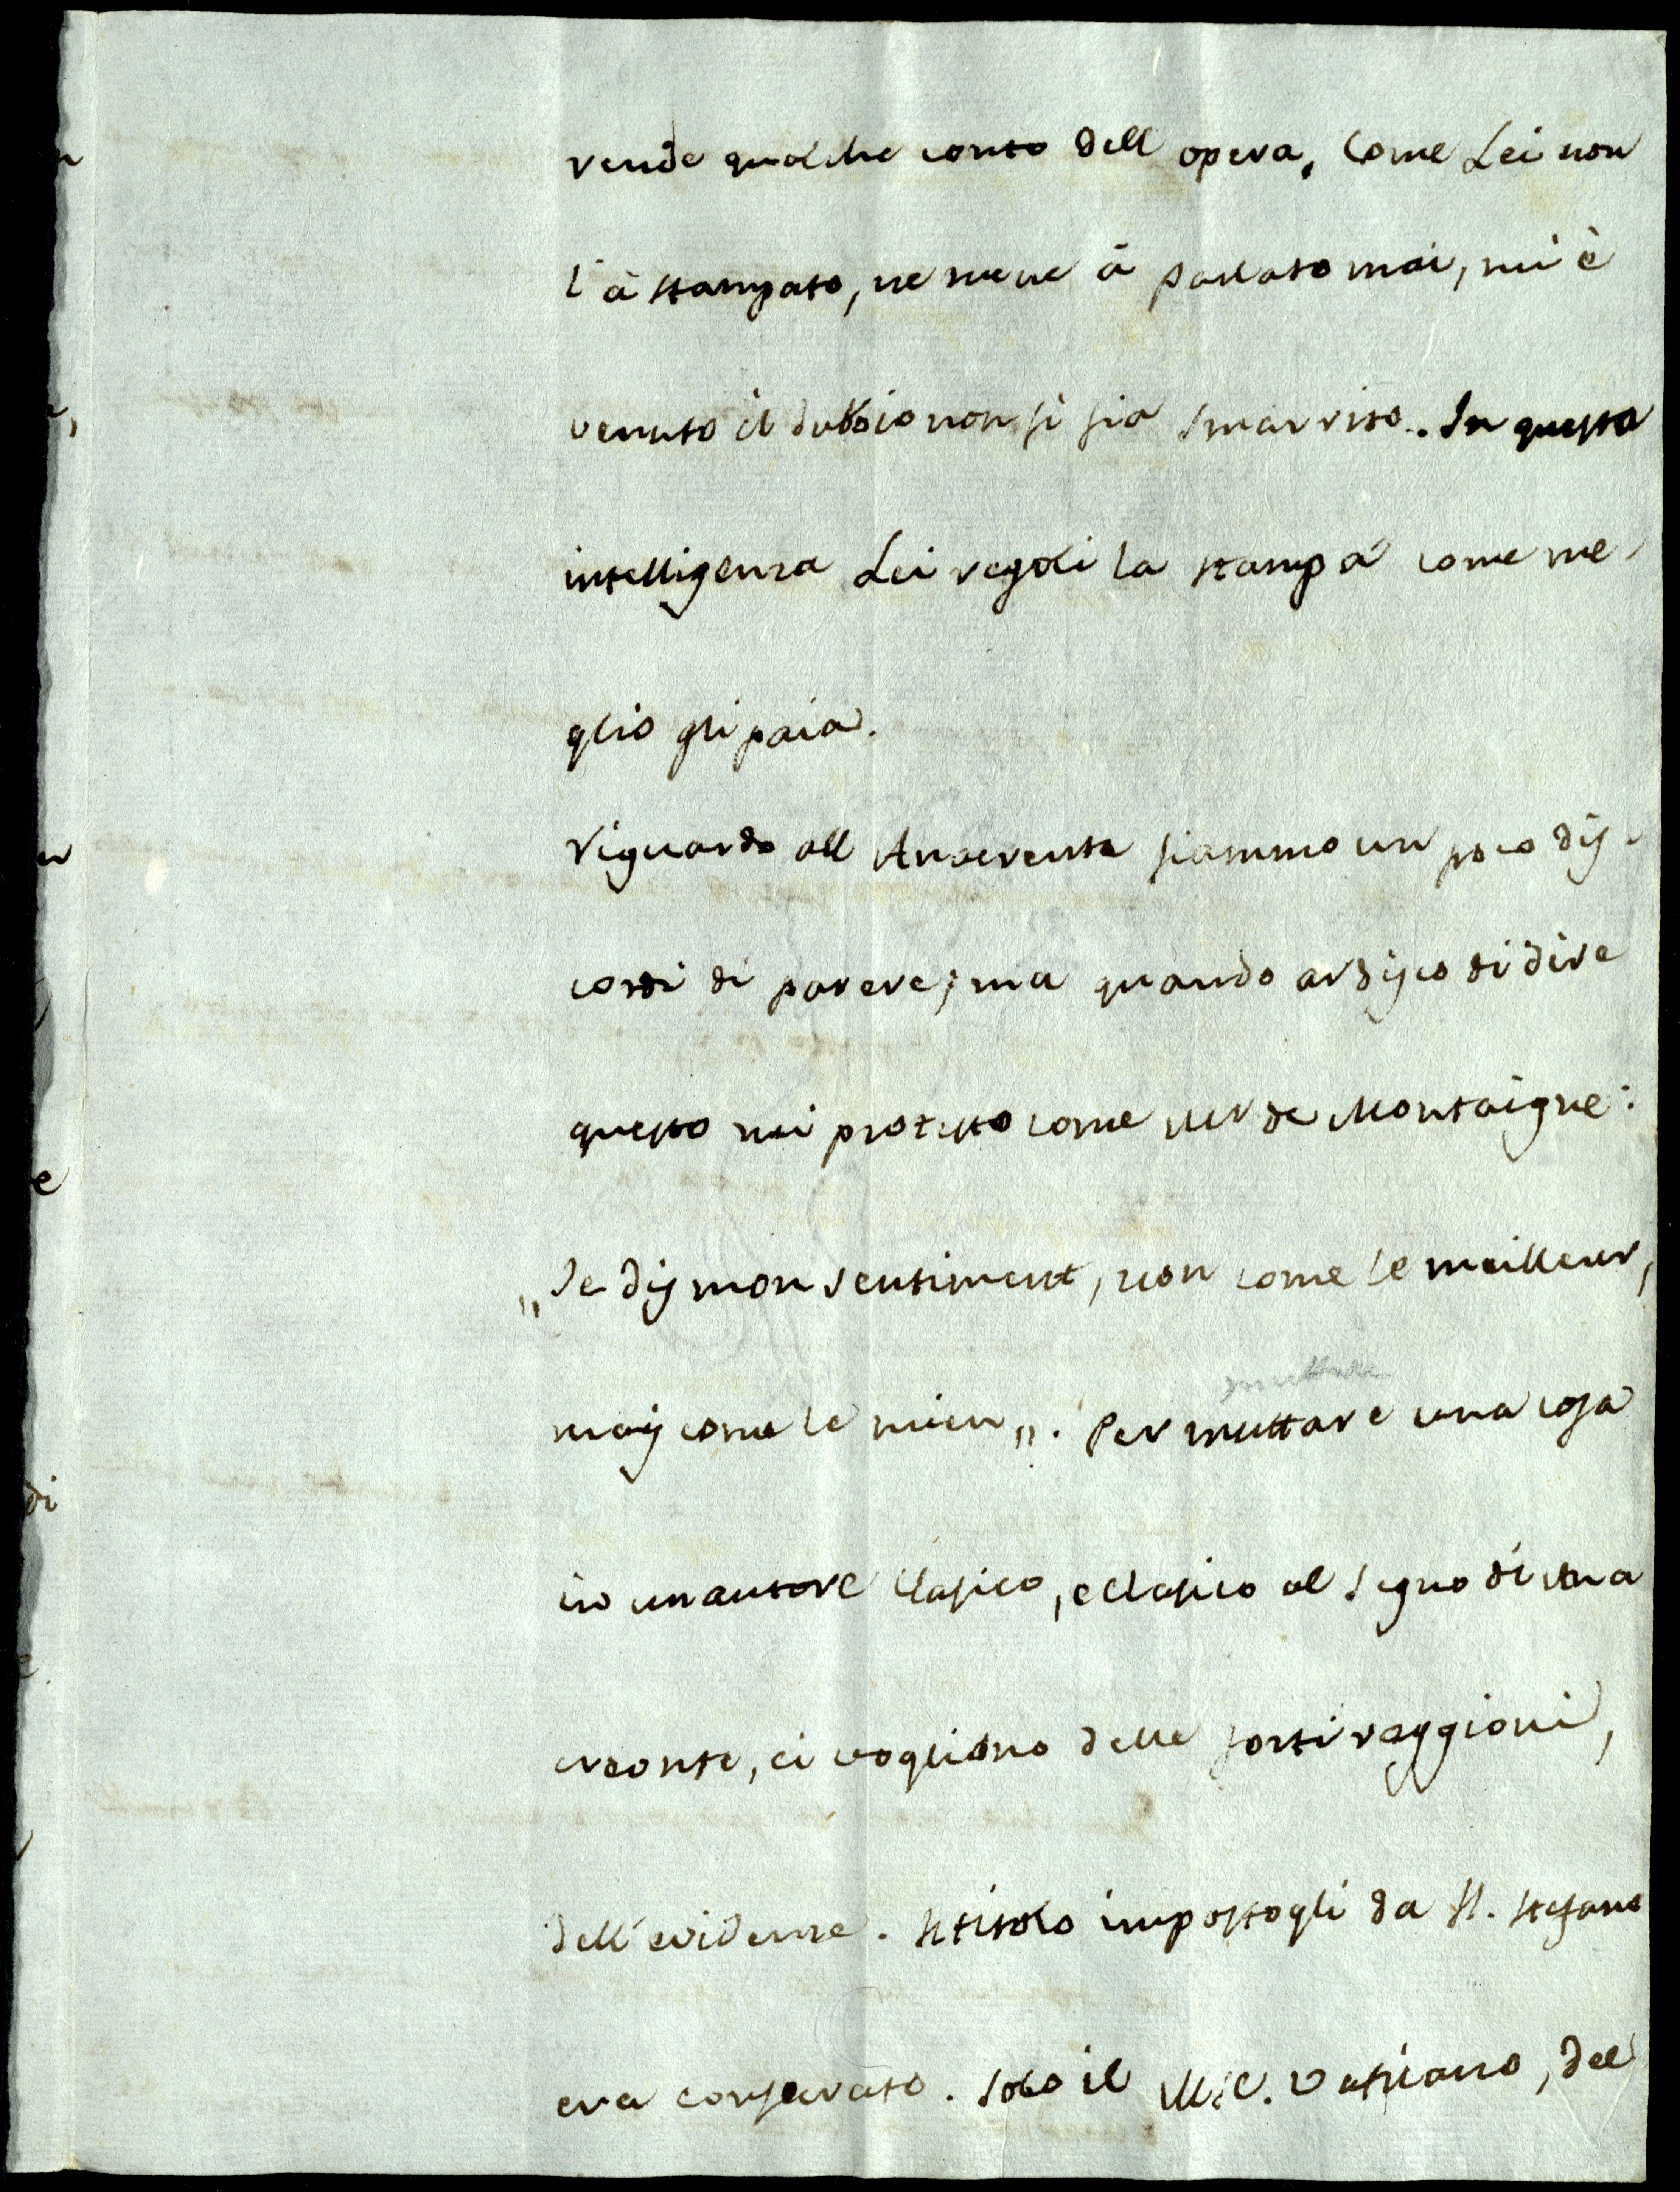 rende qualche conto dell opera, Come Lei non
l'à stampato, ne me ne à parlato mai, mi è
venuto il dubbio non si sia smarrito. In questa
intelligenza Lei regoli la stampa come me-
glio gli paia.
Riguardo all Anacreonte siammo un poco dis-
cordi di parere; ma quando ardisco di dire
questo mi protesto come Mr de Montaigne:
„Je dis mon sentiment, non come le meilleur,
mais come le mien„. Per muttare una cosa
in un autore classico, e classico al segno di Ana
creonte, ci vogliono delle forti raggioni,
dell'evidenze. Il titolo impostogli da H. Stefano
era conservato. Solo il MSC. Vaticano, del